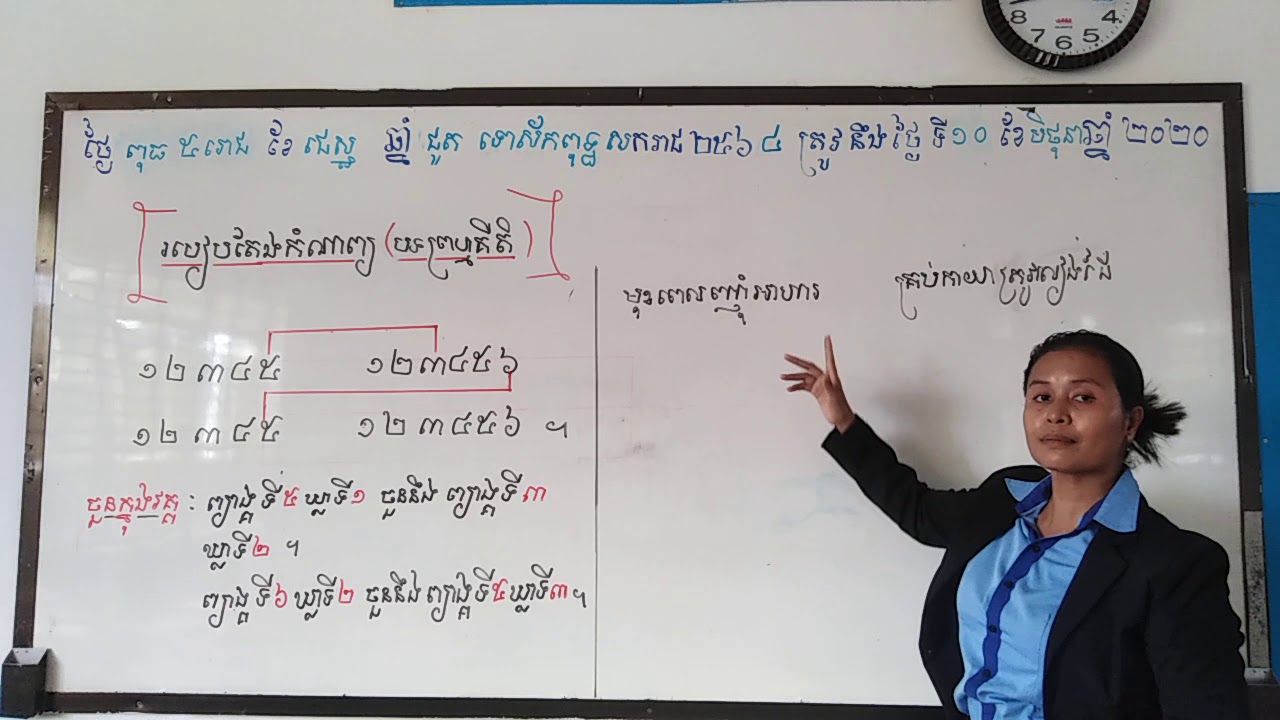 ថ្ងៃ ពុធ ៥រោជ ខែ ជេស្ឋ ឆ្នាំ ជូត ទោស័កពុទ្ធសករាជ ២៥៦៤ ត្រូវនឹងថ្ងៃ ទី១០ ខែមិថុនាឆ្នាំ ២០២០
របៀបតែងកំណាព្យ (បទព្រហ្មគីតិ)
មុនពេលញ៉ាំអាហារ គ្រប់កាយាត្រូវលៀងដៃ
១២៣៤៥ ១២៣៤៥៦
១២៣៤៥ ១២៣៤៥៦ ។
ចួនក្នុងវគ្គ : ព្យាង្គទី៥ ឃ្លាទី១ ចួននឹង ព្យាង្គទី៣
ឃ្លាទី២ ។
ព្យាង្គទី៦ ឃ្លាទី២ ចួននឹង ព្យាង្គទី៥ឃ្លាទី៣ ។
8 7 6 5 4